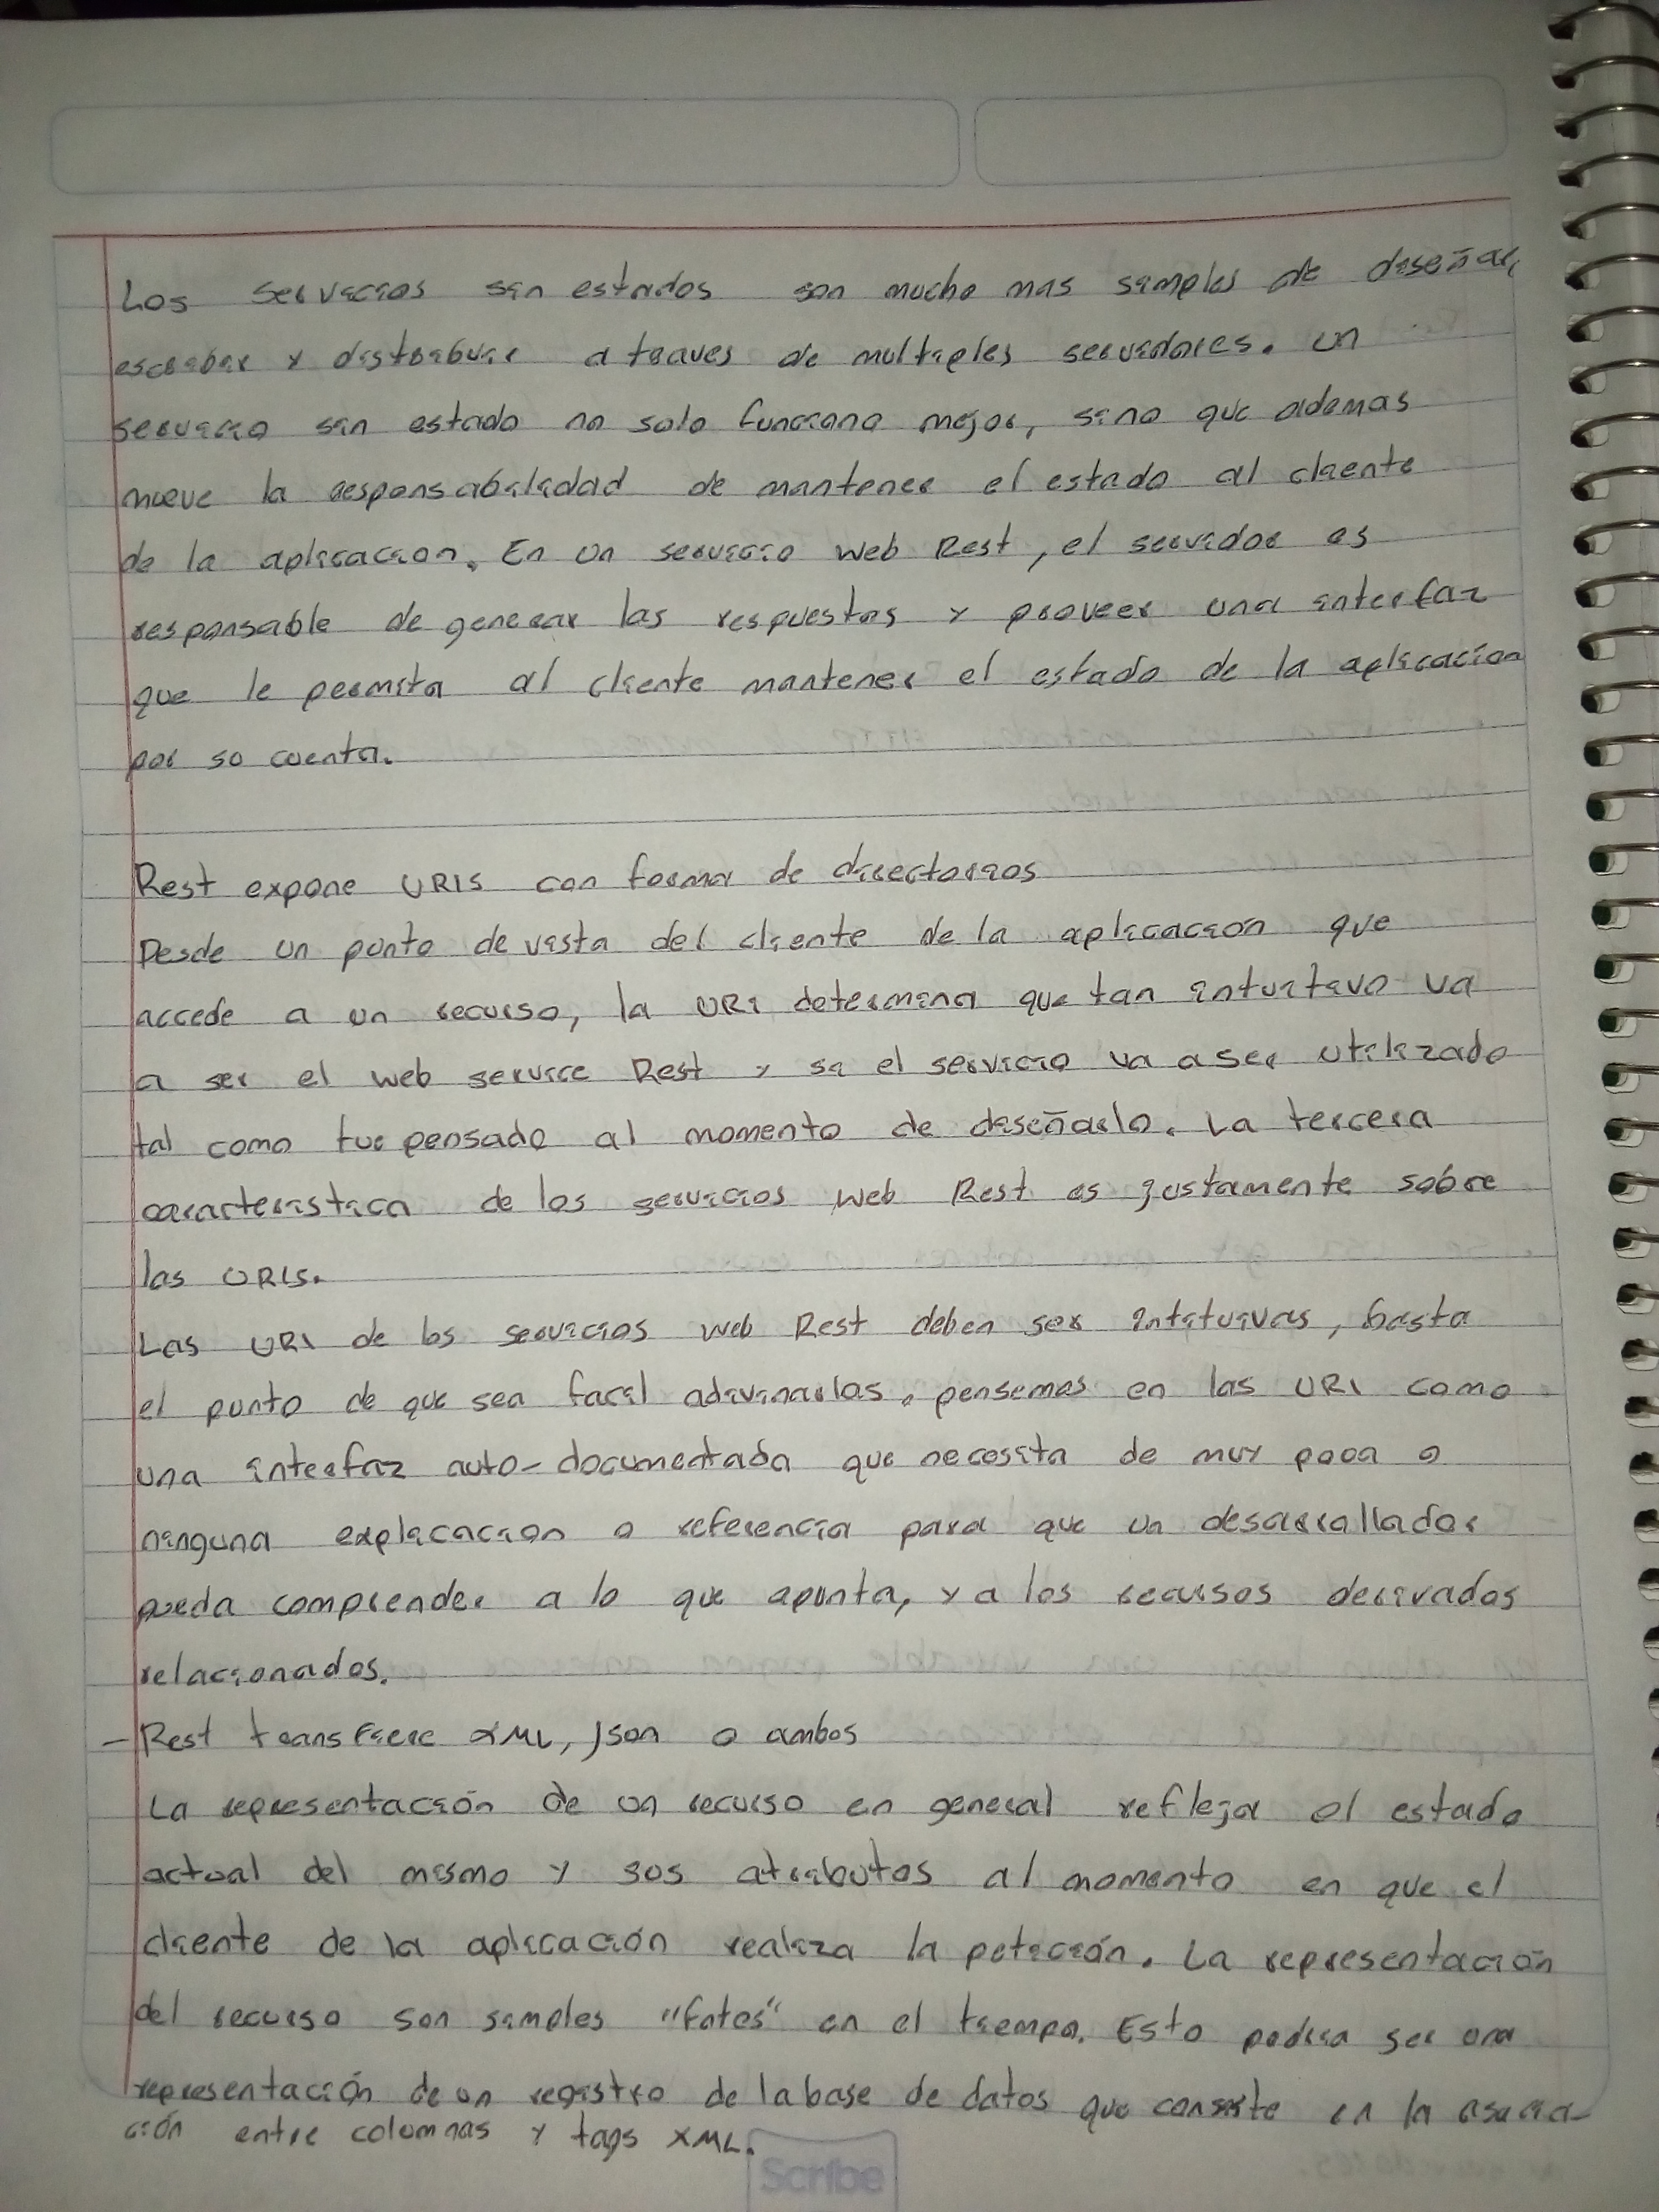 Los servicios sin estados son mucho mas simples de diseñar,
escribir y distribuir a traves de multiples servidores. un
servicio sin estado no solo funciona mejor, sino que ademas
mueve la responsabilidad de mantener el estado al cliente
de la aplicacion. En un servicio web Rest, el servidor es
responsable de generar las respuestas y proveer una interfaz
que le permita al cliente mantener el estado de la aplicacion
por so cuenta.
Rest expone URIS con forma de directorios
Desde un punto de vista del cliente de la aplicacion que
accede a un recurso, la URI determina que tan intuitivo va
a ser el web service Rest y si el servicio va a ser utilizado
tal como fue pensado al momento de diseñarlo. La tercera
caracteristica de los servicios web Rest es justamente sobre
las URIS.
Las URI de los servicios web Rest deben ser intituivas, hasta
el punto de que sea facil adivinarlas. pensemos en las URI como
una interfaz auto-documentada que necesita de muy poca o
ninguna explicacion o referencia para que un desarrollador
pueda comprender a lo que apunta, y a los recursos derivados
relacionados.
- Rest transfiere XML, Json o ambos
La representación de un recurso en general refleja el estado
actual del mismo y sus atributos al momento en que el
cliente de la aplicación realiza la petición. La representación
del recurso son simples "fotos" en el tiempo. Esto podria ser una
representación de un registro de la base de datos que consiste en la asocia-
ción entre columnas y tags XML.
Scribe